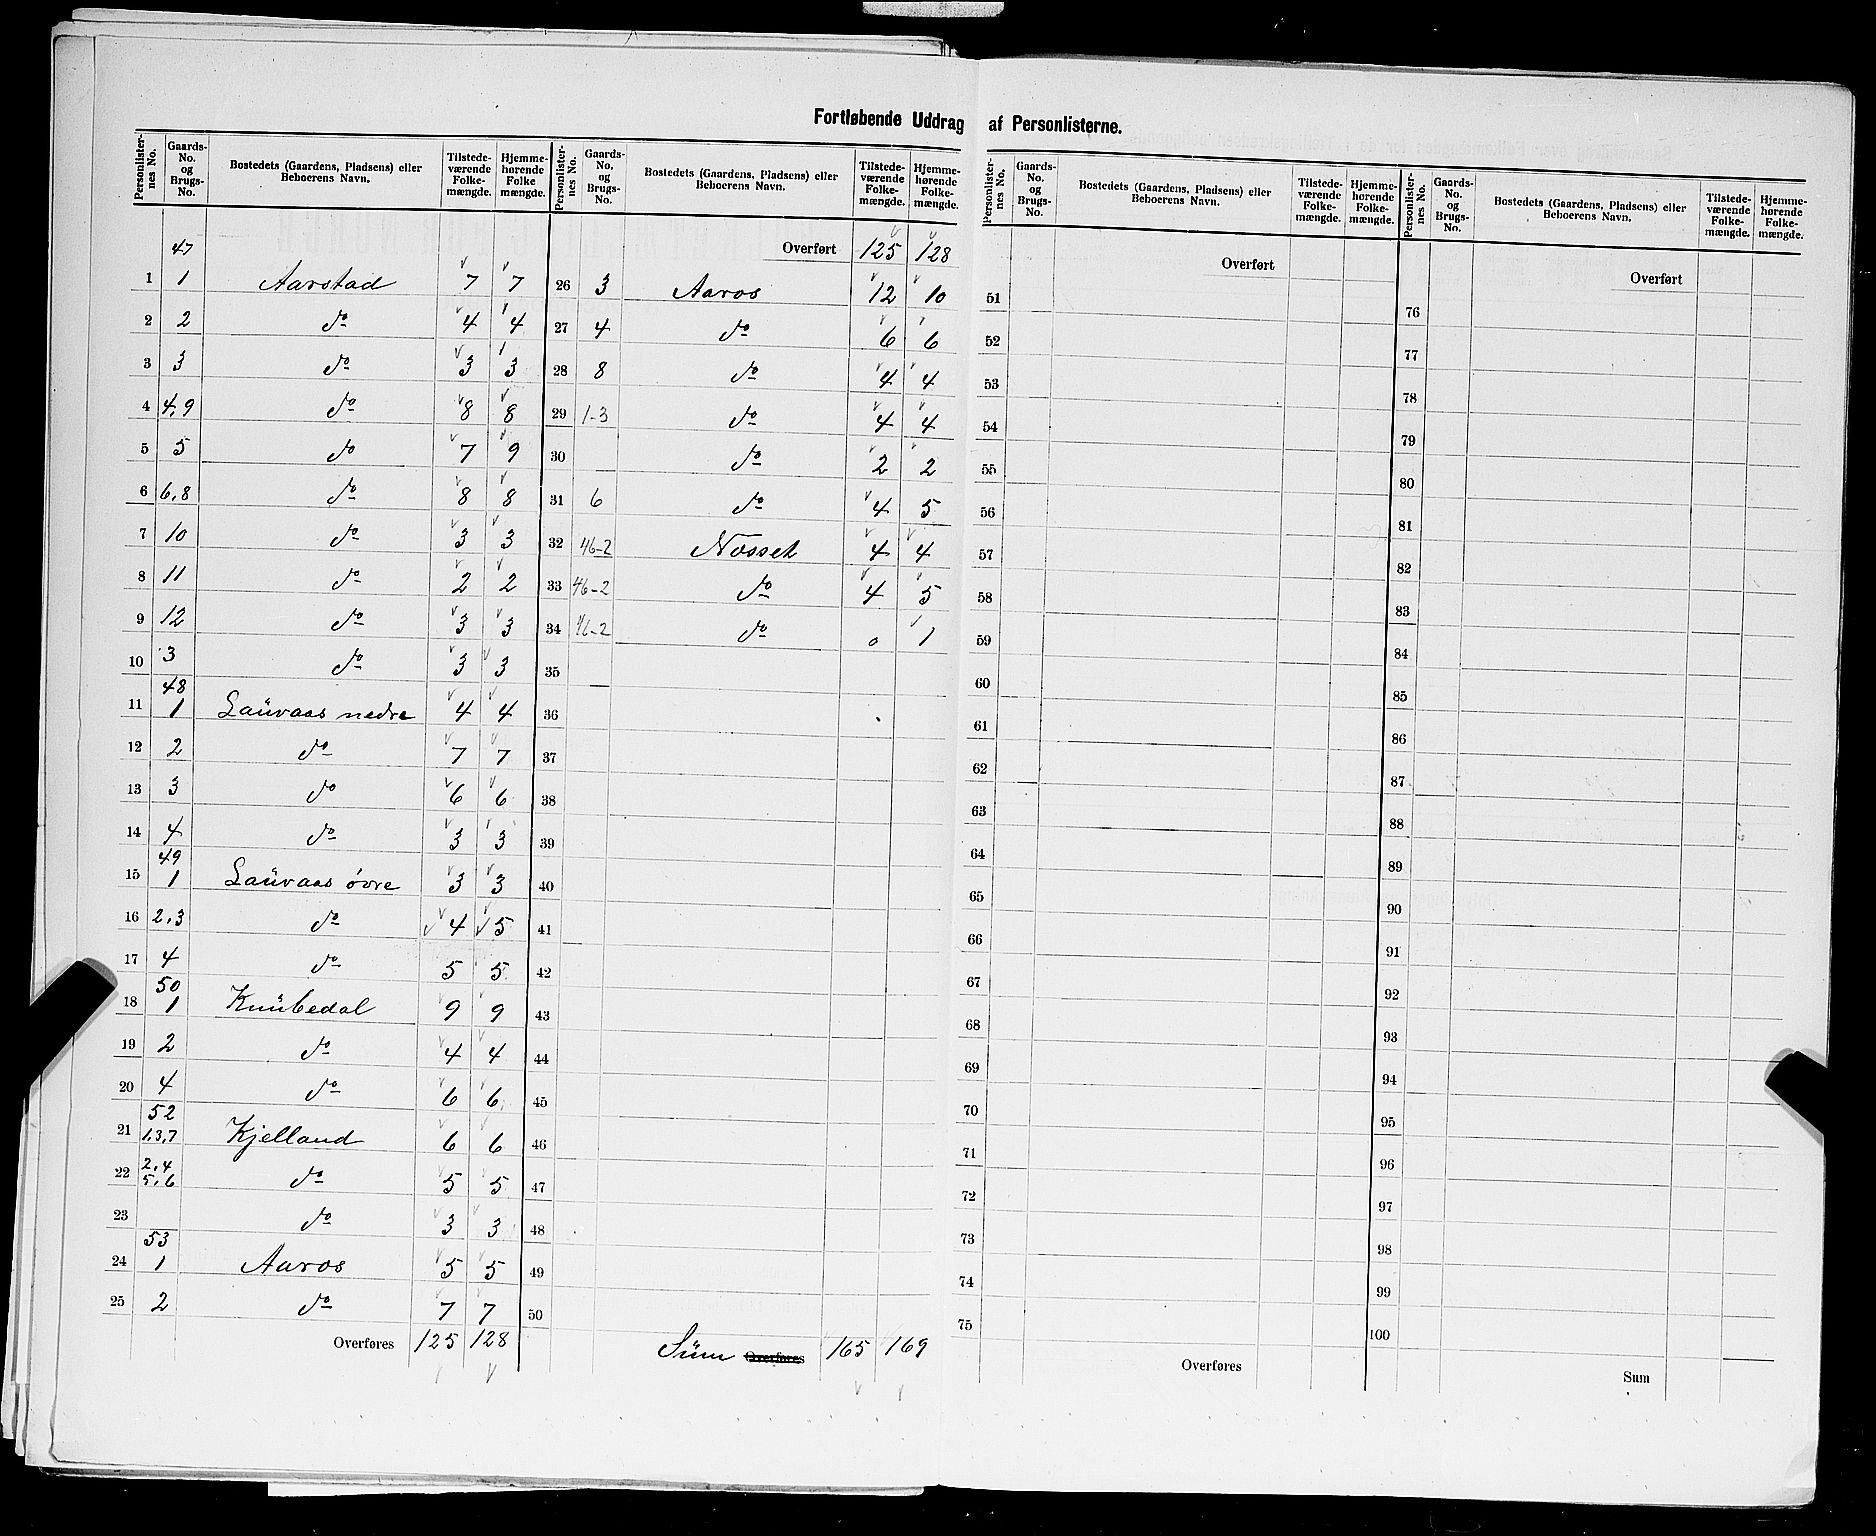 Fortløbende Uddrag af Personlisterne.
Personlister-nes No. | Gaards-No. og Brugs-No. | Bostedets (Gaardens, Pladsens) eller Beboerens Navn. | Tilstede-værende Folke-mængde. | Hjemme-hørende Folke mængde.
47
1 | 1 | Aarstad | 7 | 7
2 | 2 | do | 4 | 4
3 | 3 | do | 3 | 3
4 | 4,9 | do | 8 | 8
5 | 5 | do | 7 | 9
6 | 6,8 | do | 8 | 8
7 | 10 | do | 3 | 3
8 | 11 | do | 2 | 2
9 | 12 | do | 3 | 3
10 | 3 | do | 3 | 3
48
11 | 1 | Lauvaas nedre | 4 | 4
12 | 2 | do | 7 | 7
13 | 3 | do | 6 | 6
14 | 4 | do | 3 | 3
49
15 | 1 | Lauvaas øvre | 3 | 3
16 | 2,3 | do | 4 | 5
17 | 4 | do | 5 | 5
50
18 | 1 | Knubedal | 9 | 9
19 | 2 | do | 4 | 4
20 | 4 | do | 6 | 6
52
21 | 1,3,7 | Kjelland | 6 | 6
22 | 2,4 5,6 | do | 5 | 5
23 | do | 3 | 3
53
24 | 1 | Aaros | 5 | 5
25 | 2 | do | 7 | 7
Overføres | 125 | 128
Personlister-nes No. | Gaards-No. og Brugs-No. | Bostedets (Gaardens, Pladsens) eller Beboerens Navn. | Tilstede-værende Folke-mængde. | Hjemme-hørende Folke-mængde.
Overført | 125 | 128
26 | 3 | Aaros | 12 | 10
27 | 4 | do | 6 | 6
28 | 8 | do | 4 | 4
29 | 1-3 | do | 4 | 4
30 | do | 2 | 2
31 | 6 | do | 4 | 5
32 | 46-2 | Nesset | 4 | 4
33 | 46-2 | do | 4 | 5
34 | 46-2 | do | 0 | 1
35
36
37
38
39
40
41
42
43
44
45
46
47
48
49
50
Sum Overføres | 165 | 169
Personlister-nes No. | Gaards-No. og Brugs-No. | Bostedets (Gaardens, Pladsens) eller Beboerens Navn. | Tilstede-værende Folke-mængde. | Hjemme-hørende Folke-mængde.
Overført
51
52
53
54
55
56
57
58
59
60
61
62
63
64
65
66
67
68
69
70
71
72
73
74
75
Overføres
Personlister-nes No. | Gaards-No. og Brugs-No. | Bostedets (Gaardens, Pladsens) eller Beboerens Navn. | Tilstede-værende Folke-mængde. | Hjemme-hørende Folke-mængde.
Overført
76
77
78
79
80
81
82
83
84
85
86
87
88
89
90
91
92
93
94
95
96
97
98
99
100
Sum